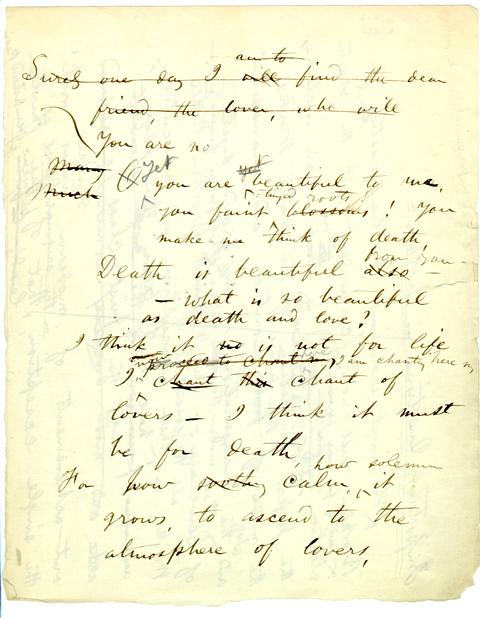 am to
Surely one day I will find the dear
friend, the lover, who will
You are no
Many Yet not
Much (O you are beautiful to me,
tinged roots
you faint blossoms! You
make me think of death,
from you —
Death is beautiful also —
— what is so beautiful
as death and love?
I think it no is not for life
now proceed to chant my I am chanting here my
I chant this chant of
lovers — I think it must
be for death,
how solemn
For how soothing calm, it
grows, to ascend to the
atmosphere of lovers,